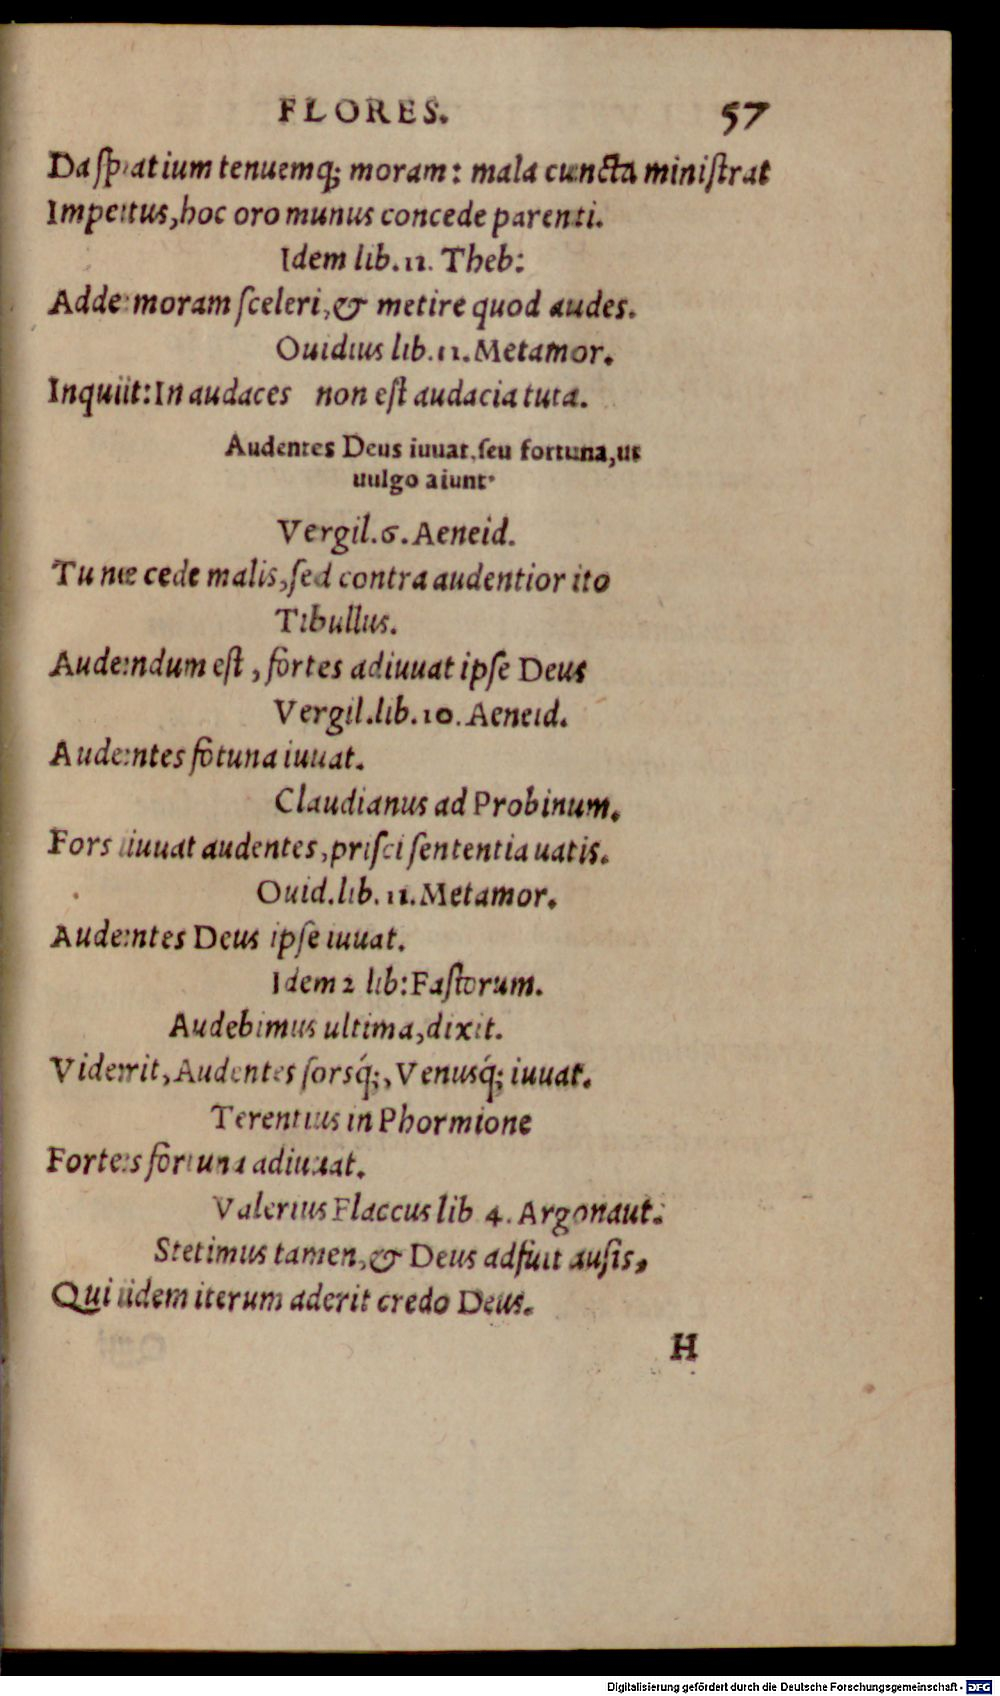 FLORES. 57
Da ſpatium tenuemq; moram: mala cuncta miniſtrat
Impetus, hoc oro munus concede parenti.
Idem lib. 11. Theb:
Adde moram ſceleri, & metire quod audes.
Ouidius lib. 11. Metamor.
Inquiit: In audaces non eſt audacia tuta.
Audentes Deus iuuat, ſeu fortuna, ut
uulgo aiunt.
Vergil. 6. Aeneid.
Tu ne cede malis, ſed contra audentior ito
Tibullus.
Audendum eſt, fortes adiuuat ipſe Deus
Vergil. lib. 10. Aeneid.
Audentes fotuna iuuat.
Claudianus ad Probinum.
Fors iuuat audentes, priſci ſententia uatis.
Ouid. lib. 11. Metamor.
Audentes Deus ipſe iuuat.
Idem 2 lib: Faſtorum.
Audebimus ultima, dixit.
Viderit, Audentes forsq́;, Venusq́; iuuat.
Terentius in Phormione
Fortes fortuna adiuuat.
Valerius Flaccus lib 4. Argonaut.
Stetimus tamen, & Deus adfuit auſis,
Qui idem iterum aderit credo Deus.
H
Digitalisierung gefördert durch die Deutsche Forschungsgemeinschaft - DFG